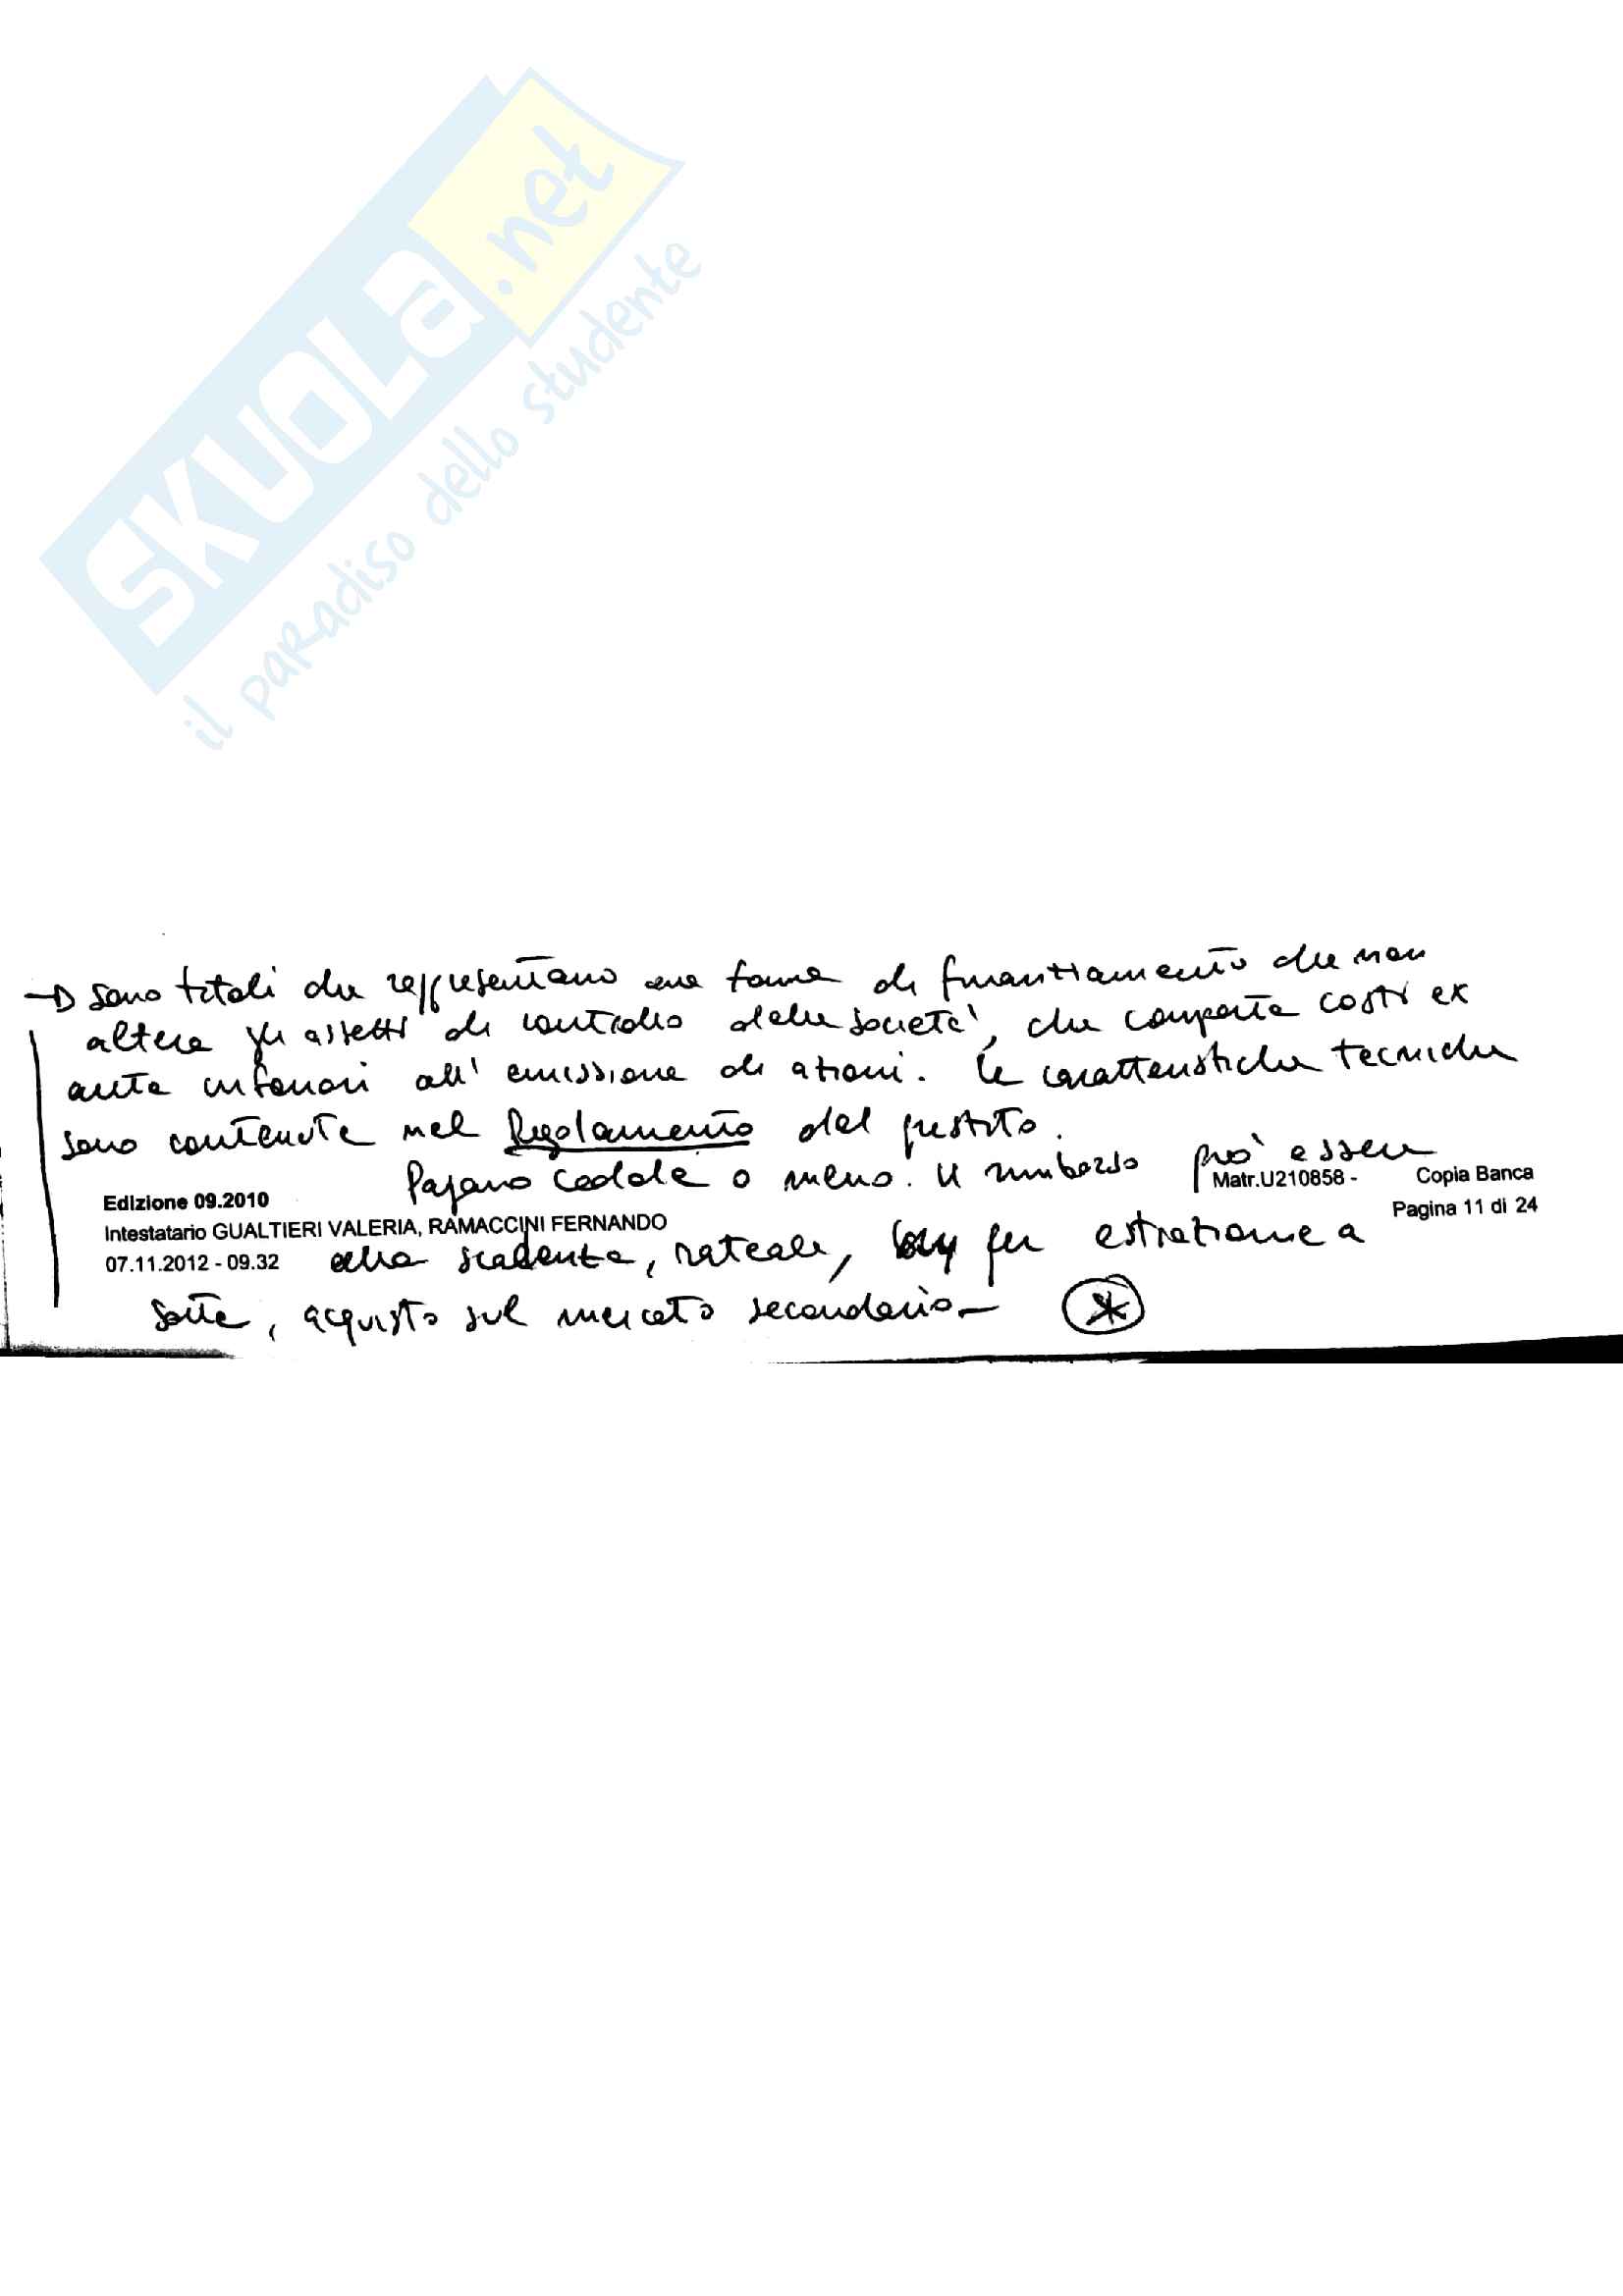 SKUOLA.net
il paradiso dello studente
→ sono titoli che rappresentano una forma di finanziamento che non
altera gli assetti di controllo della società, che comporta costi ex
ante inferiori all'emissione di azioni. Le caratteristiche tecniche
sono contenute nel Regolamento del prestito.
Pagano cedole o meno. Il rimborso può essere
Matr.U210858 - Copia Banca
Edizione 09.2010
Pagina 11 di 24
Intestatario GUALTIERI VALERIA, RAMACCINI FERNANDO
07.11.2012 - 09.32
alla scadenza, rateale, per estrazione a
sorte, acquisto sul mercato secondario
*